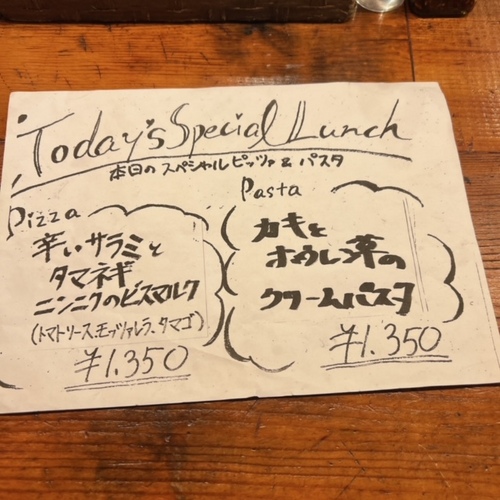 Today's Special Lunch
本日のスペシャルピッツァ & パスタ
Pizza
辛いサラミと
タマネギ
ニンニクのビスマルク
(トマトソース、モッツァレラ、タマゴ)
¥1,350
Pasta
カキと
ホウレン草の
クリームパスタ
¥1.350